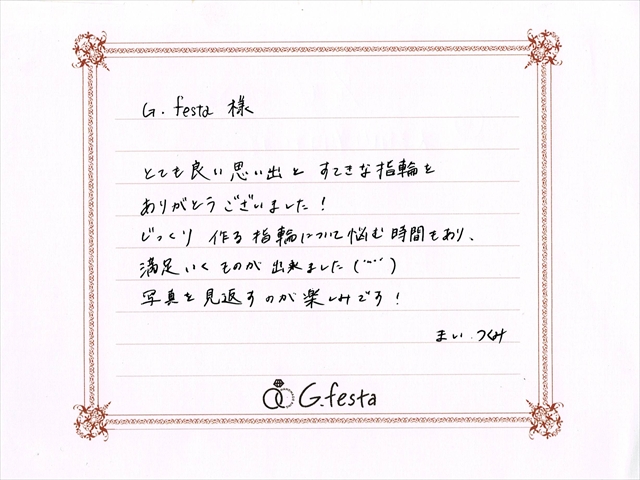 G. festa 様
とても良い思い出と すてきな指輪を
ありがとうございました！
じっくり 作る指輪について悩む時間もあり、
満足いくものが出来ました(¨)
写真を見返すのが楽しみです！
まい.つくみ
G.festa